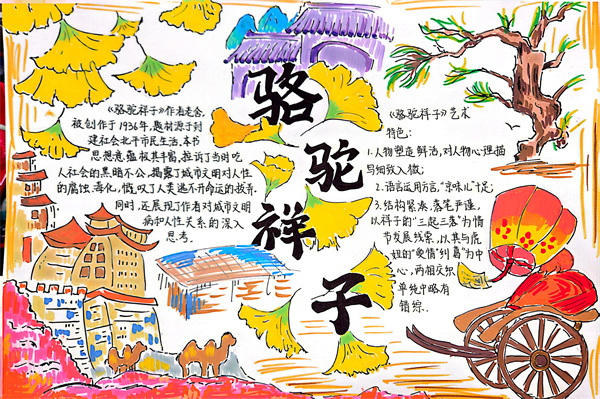 骆驼祥子
《骆驼祥子》作者老舍,
被创作于1936年,题材源于到
建社会北平市民生活,本书
思想意蕴极其丰富,控诉了当时吃
人社会的黑暗不公,揭露了城市文明对人性
的腐蚀、毒化,慨叹了人类逃不开命运的拨弄.
同时,还展现了作者对城市文明
病和人性关系的深入
思考.
《骆驼祥子》艺术
特色:
1.人物塑造鲜活,对人物心理描
写细致入微;
2.语言运用方言,“京味儿”十足;
3.结构紧凑,落笔严谨.
以祥子的“三起三落”为情
节发展线索,以其与虎
妞的“爱情”纠葛为中
心,两相交织
单纯中略有
错综.